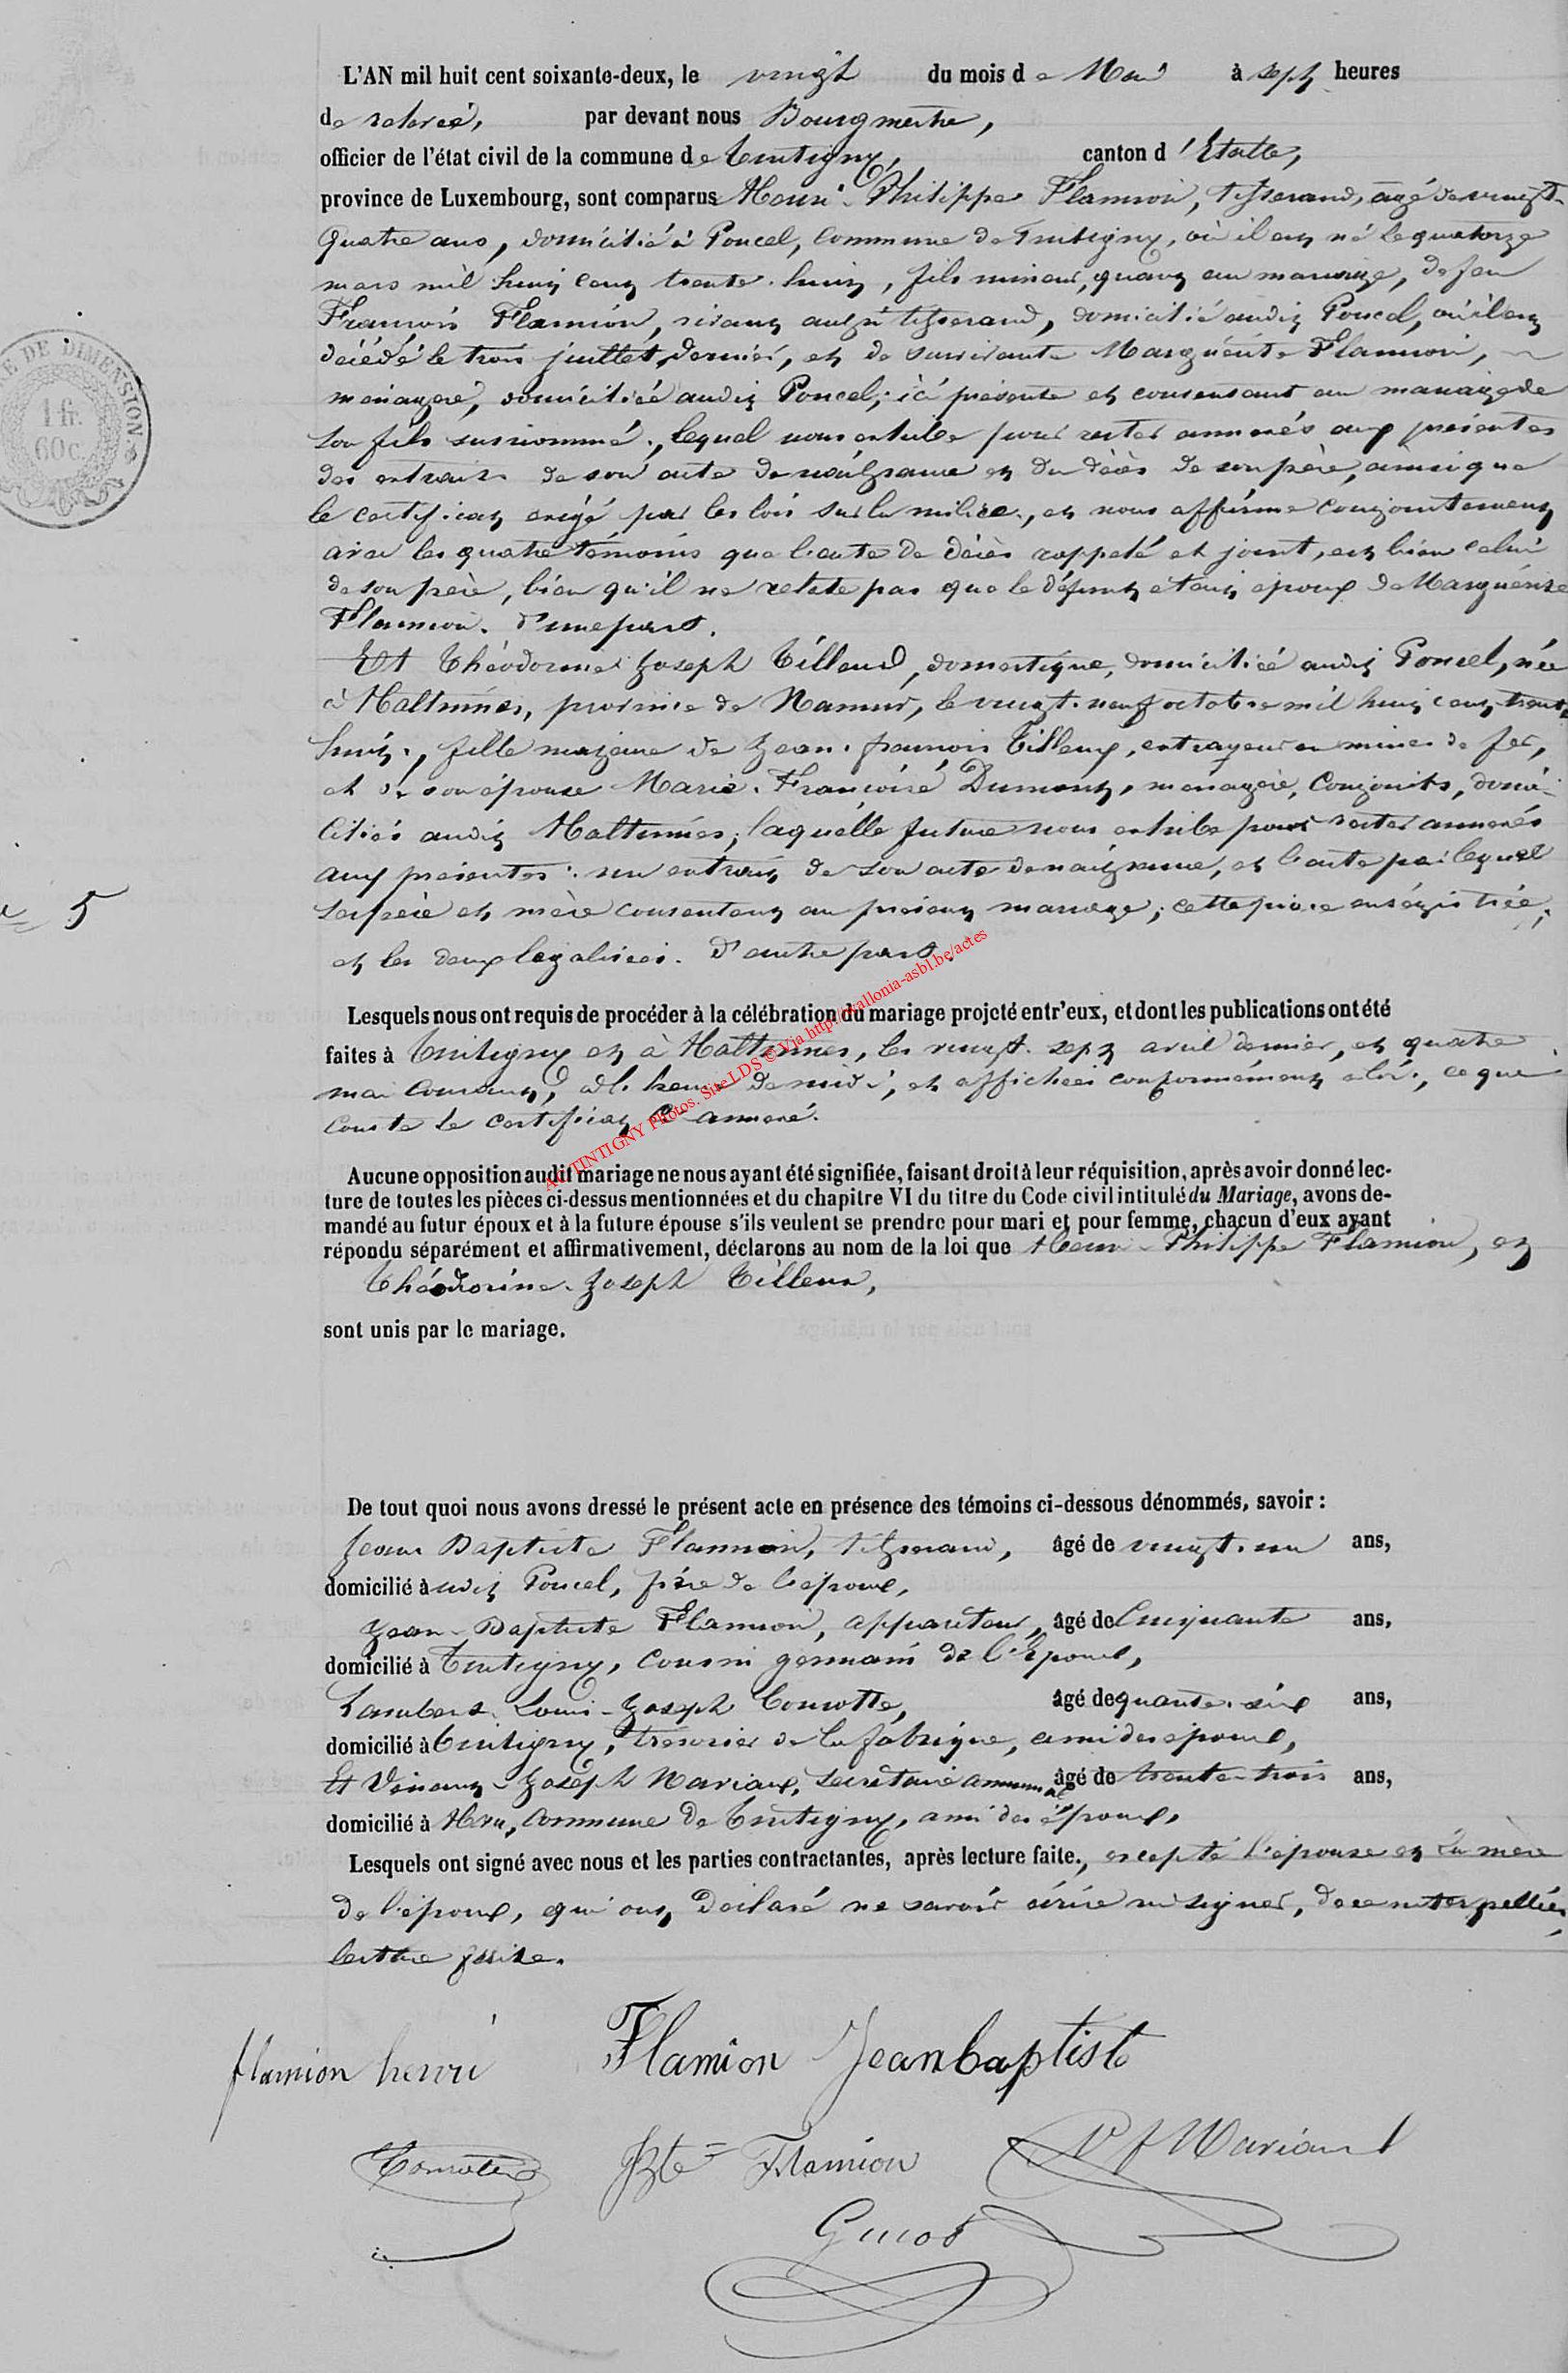 L'AN mil huit cent soixante-deux, le vingt du mois de Mai à sept heures
de relevée, par devant nous Bourgmestre,
officier de l'état civil de la commune de Tintigny, canton d'Etalle,
province de Luxembourg, sont comparus Henri-Philippe Flamion, tisserand, agé de vingt-
quatre ans, domicilié à Poncel, commune de Tintigny, où il est né le quatorze
mars mil huit cent trente-huit, fils mineur, quant au mariage, de feu
François Flamion, vivant aussi tisserand, domicilié audit Poncel, où il est
décédé le trois juillet dernier, et de survivante Marguérite Flamion,
ménagère, domiciliée audit Poncel; ici présente et consensant au mariage de
son fils susnommé; lequel nous exhibe pour rester annexés aux présentes
des extraits de son acte de naissance et du décès de son père, ainsi que
le certificat exigé par les lois sur la milice, et nous affirme conjointement
avec les quatre témoins que l'acte de décès rappelé et joint, est bien celui
de son père, bien qu'il ne relate pas que le défunt était époux de Marguérite
Flamion. D'une part.
Et Théodorine Joseph Tilleux, domestique, domiciliée audit Poncel, née
à Haltinnes, province de Namur, le vingt-neuf octobre mil huit cent trente
huit, fille majeure de Jean-françois Tilleux, extrayeur en mines de fer,
et de son épouse Marie-Françoise Dumont, ménagère, conjoints, domi-
ciliés audit Haltinnes; laquelle future nous exhibe pour rester annexés
aux présentes: un extrait de son acte de naissance, et l'acte par lequel
ses père et mère consentent au présent mariage; cette pièce enrégistrée;
et les deux légalisées. D'autre part.
5
Lesquels nous ont requis de procéder à la célébration du mariage projeté entr'eux, et dont les publications ont été
faites à Tintigny et à Haltinnes, les vingt-sept avril dernier, et quatre
mai courant, à l'heure de midi, et affichées conformément à la loi, ce que
conste le certificat annexé.
Aucune opposition audit mariage ne nous ayant été signifiée, faisant droit à leur réquisition, après avoir donné lec-
ture de toutes les pièces ci-dessus mentionnées et du chapitre VI du titre du Code civil intitulé du Mariage, avons de-
mandé au futur époux et à la future épouse s'ils veulent se prendre pour mari et pour femme, chacun d'eux ayant
répondu séparément et affirmativement, déclarons au nom de la loi que Henri-Philippe Flamion, et
Théodorine-Joseph Tilleux,
sont unis par le mariage.
De tout quoi nous avons dressé le présent acte en présence des témoins ci-dessous dénommés, savoir :
Jean Baptiste Flamion, tisserand, âgé de vingt-un ans,
domicilié audit Poncel, frère de l'époux,
Jean-Baptiste Flamion, appariteur, âgé de Cinquante ans,
domicilié à Tintigny, cousin germain de l'Epoux,
Lambert-Louis-Joseph âgé de quarante-six ans,
domicilié à Tintigny, trésorier de la fabrique, ami des époux,
Et Vincent-Joseph Mariaux, secrétaire communal âgé de trente-trois ans,
domicilié à Han, commune de Tintigny, ami des époux,
Lesquels ont signé avec nous et les parties contractantes, après lecture faite., excepté l'épouse et la mère
de l'époux, qui ont déclaré ne savoir écrire ni signer, de ce interpellées,
lecture faite.
flamion henri Flamion Jeanbaptiste
Jbte Flamion VJ Mariaux
Guiot
DE DIMENSION
1 fr.
60 c.
AC TINTIGNY Photos. Site LDS © Via http://wallonia-asbl.be/actes